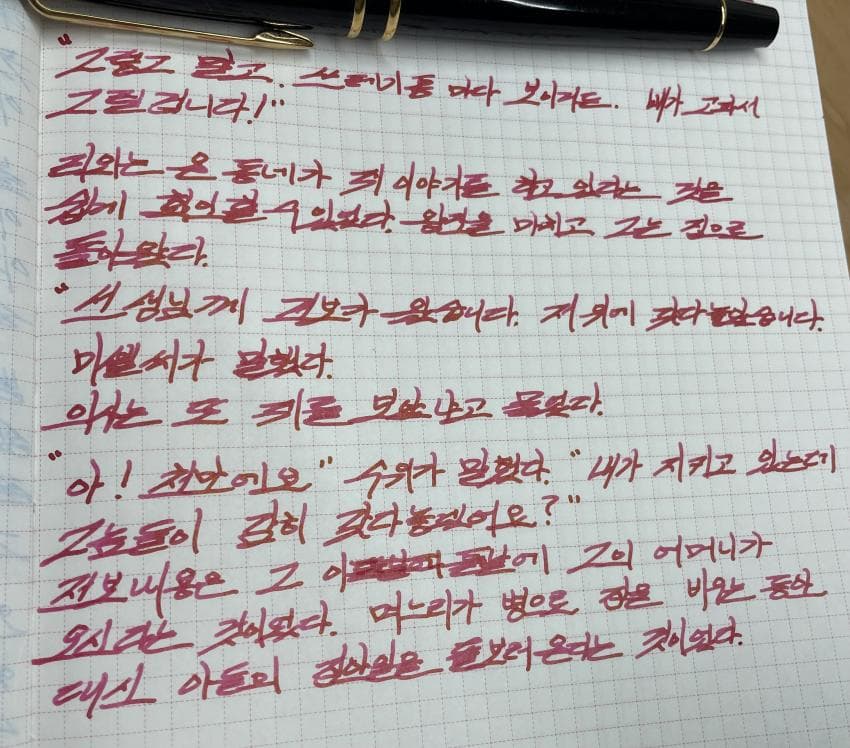 "그렇고 말고. 쓰레기통 마다 보이거든. 배가 고파서
그럴겁니다!"
리외는 온 동네가 쥐 이야기를 하고 있다는 것을
쉽게 확인할 수 있었다. 왕진을 마치고 그는 집으로
돌아왔다.
"선생님께 전보가 왔습니다. 저 위에 갖다놓았습니다.
미셸씨가 말했다.
의사는 또 쥐를 보았냐고 물었다.
"아! 천만에요" 수위가 말했다. "내가 지키고 있는데
그놈들이 감히 갖다놓겠어요?"
전보내용은 그 이튿날에 그의 어머니가
오신다는 것이었다. 며느리가 병으로 집을 비운 동안
대신 아들의 집안일을 돌보러온다는 것이었다.